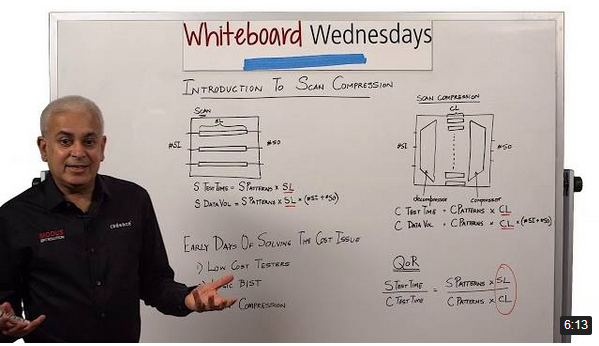 Whiteboard Wednesdays
INTRODUCTION TO SCAN COMPRESSION
SCAN
SL
#SI
#SO
S TEST TIME = S PATTERNS × SL
S DATA VOL = S PATTERNS × SL × (#SI+#SO)
EARLY DAYS OF SOLVING THE COST ISSUE
1) LOW COST TESTERS
BIST
COMPRESSION
SCAN COMPRESSION
CL
#SI
#SO
decompressor
compressor
C TEST TIME = C PATTERNS × CL
C DATA VOL = C PATTERNS × CL × (#SI+#SO)
QoR
S TEST TIME = S PATTERNS × SL
C TEST TIME C PATTERNS × CL
MODUS
cādence
6:13